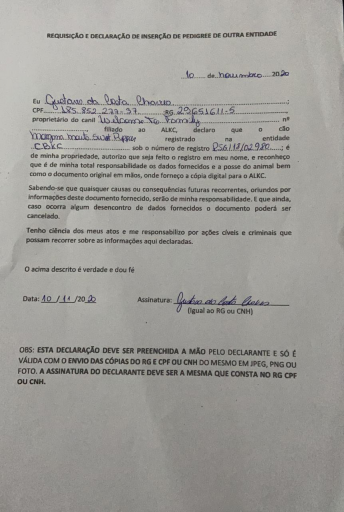 REQUISIÇÃO E DECLARAÇÃO DE INSERÇÃO DE PEDIGREE DE OUTRA ENTIDADE
10 de novembro 2020
Eu Gustavo da Costa
CPF 185.852.277-37 RG 29651611-5
proprietário do canil Welcome To Family nº
filiado ao ALKC, declaro que o cão
registrado na entidade
CBKC sob o número de registro ; é
de minha propriedade, autorizo que seja feito o registro em meu nome, e reconheço
que é de minha total responsabilidade os dados fornecidos e a posse do animal bem
como o documento original em mãos, onde forneço a cópia digital para o ALKC.
Sabendo-se que quaisquer causas ou consequências futuras recorrentes, oriundos por
informações deste documento fornecido, serão de minha responsabilidade. E que ainda,
caso ocorra algum desencontro de dados fornecidos o documento poderá ser
cancelado.
Tenho ciência dos meus atos e me responsabilizo por ações cíveis e criminais que
possam recorrer sobre as informações aqui declaradas.
O acima descrito é verdade e dou fé
Data: 10 / 11 / 2020 Assinatura:
(Igual ao RG ou CNH)
OBS: ESTA DECLARAÇÃO DEVE SER PREENCHIDA A MÃO PELO DECLARANTE E SÓ É
VÁLIDA COM O ENVIO DAS CÓPIAS DO RG E CPF OU CNH DO MESMO EM JPEG, PNG OU
FOTO. A ASSINATURA DO DECLARANTE DEVE SER A MESMA QUE CONSTA NO RG CPF
OU CNH.